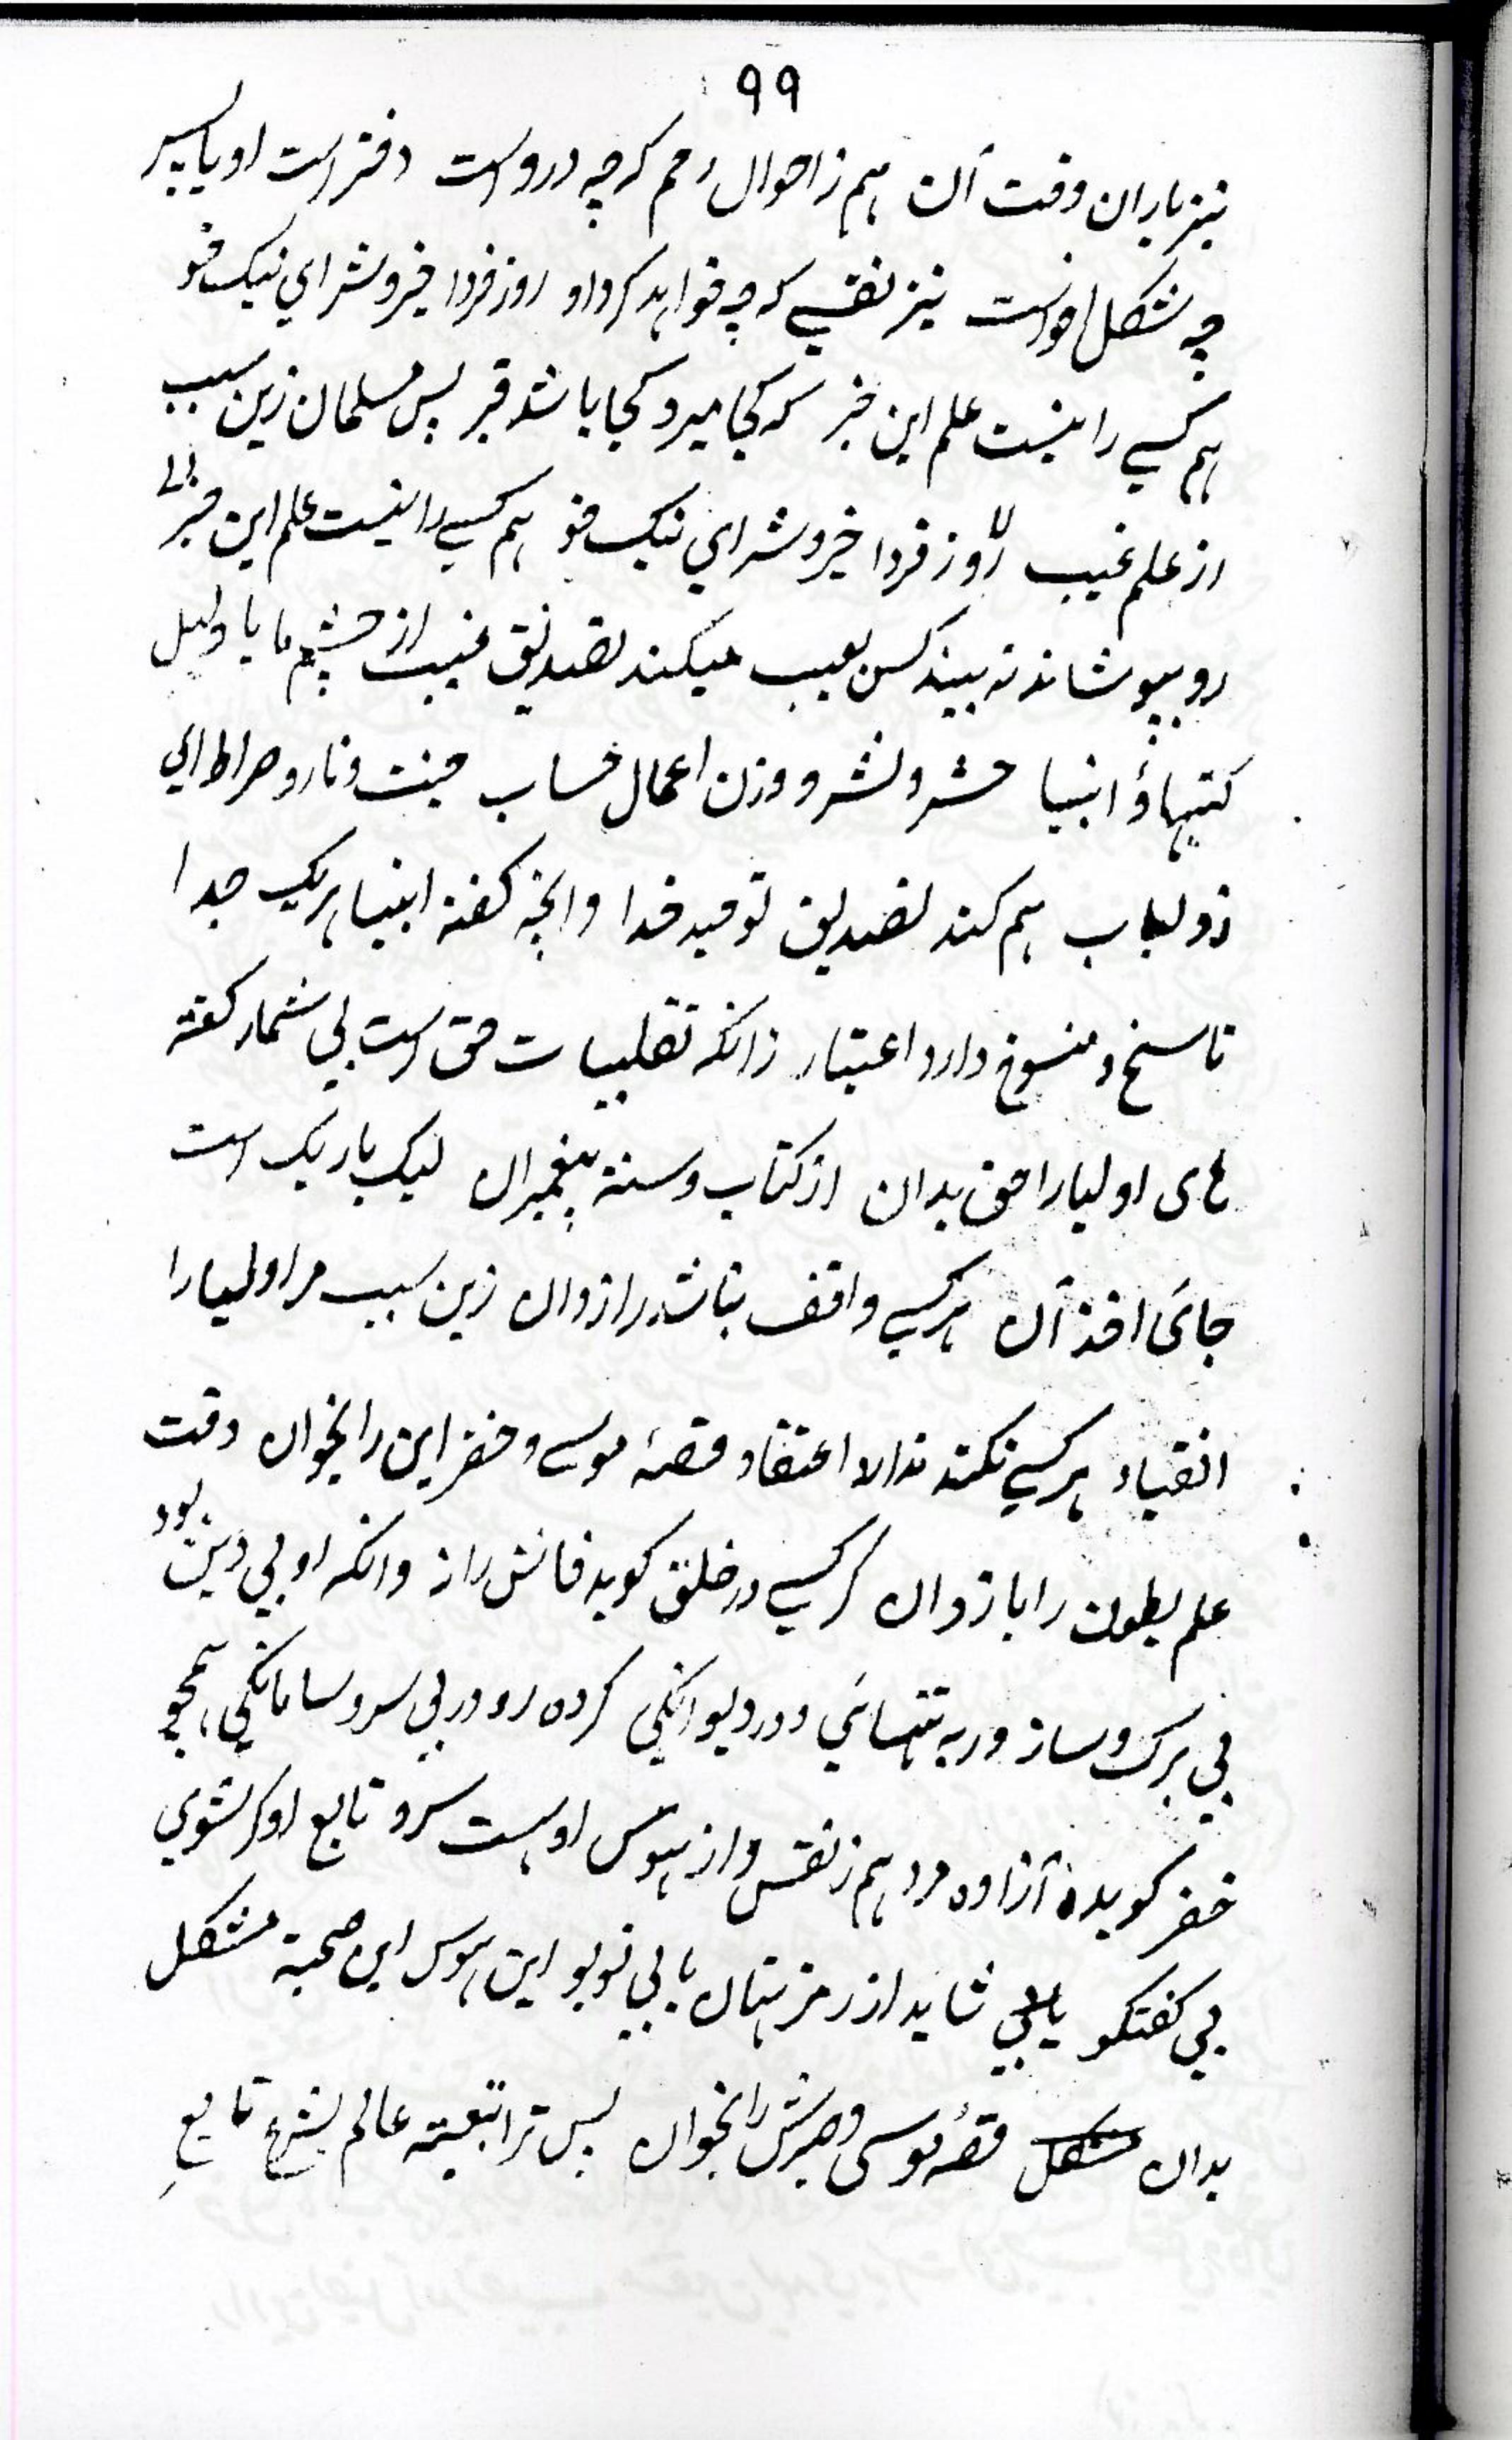 ۹۹
نیز باران وقت آن هم ز احوال رحم کرچه دروست دختراست او یا پسر
چه شکل اوراست نیز نفسی که چه خواهد کرد او روز فردا خیر و شر ای نیک خو
هم کسی را نیست علم این خبر که کجا میرد کجا باشد قبر پس مسلمان زین سبب
از علم غیب روز فردا خیر و شر ای نیک خو هم کسی را نیست علم این خبر
رو بپوشاند نه بیند کس بعیب میکند تصدیق غیب از چشم ما با دلیل
کتبها و انبیا حشر و نشر و وزن اعمال حساب جنت و نار و صراط ای
ذولباب هم کند تصدیق توحید خدا وانچه گفته انبیا هریک جدا
ناسخ و منسوخ دارد اعتبار زانکه تقلیبات حق است بی شمار کفته
های اولیا را حق بدان از کتاب و سنه پیغمبران لیک باریک است
جای اخذ آن هر کسی واقف نباشد رازدان زین سبب مر اولیا را
انقیاد هر کسی نکند ندارد اعتقاد قصه موسی و خضر این را بخوان دقت
علم بطون را باز دان گر کسی در خلق کوید فاش راز وانکه او بی دین بود
بی برک و ساز ور به تنهائی و در دیوانکی کرده رو در بی سر و سامانکی همچو
خضر کوبده آزاده مرد هم ز نفس و از هوس اوست سرد تابع او کر شوی
بی کفتکو یابی شاید از رمز نهان یا بی تو بو این هوس این صحبة مشکل
بدان مشکل قصهٔ موسی و صبرش را بخوان پس ترا تبعیته عالم بشرع تابع